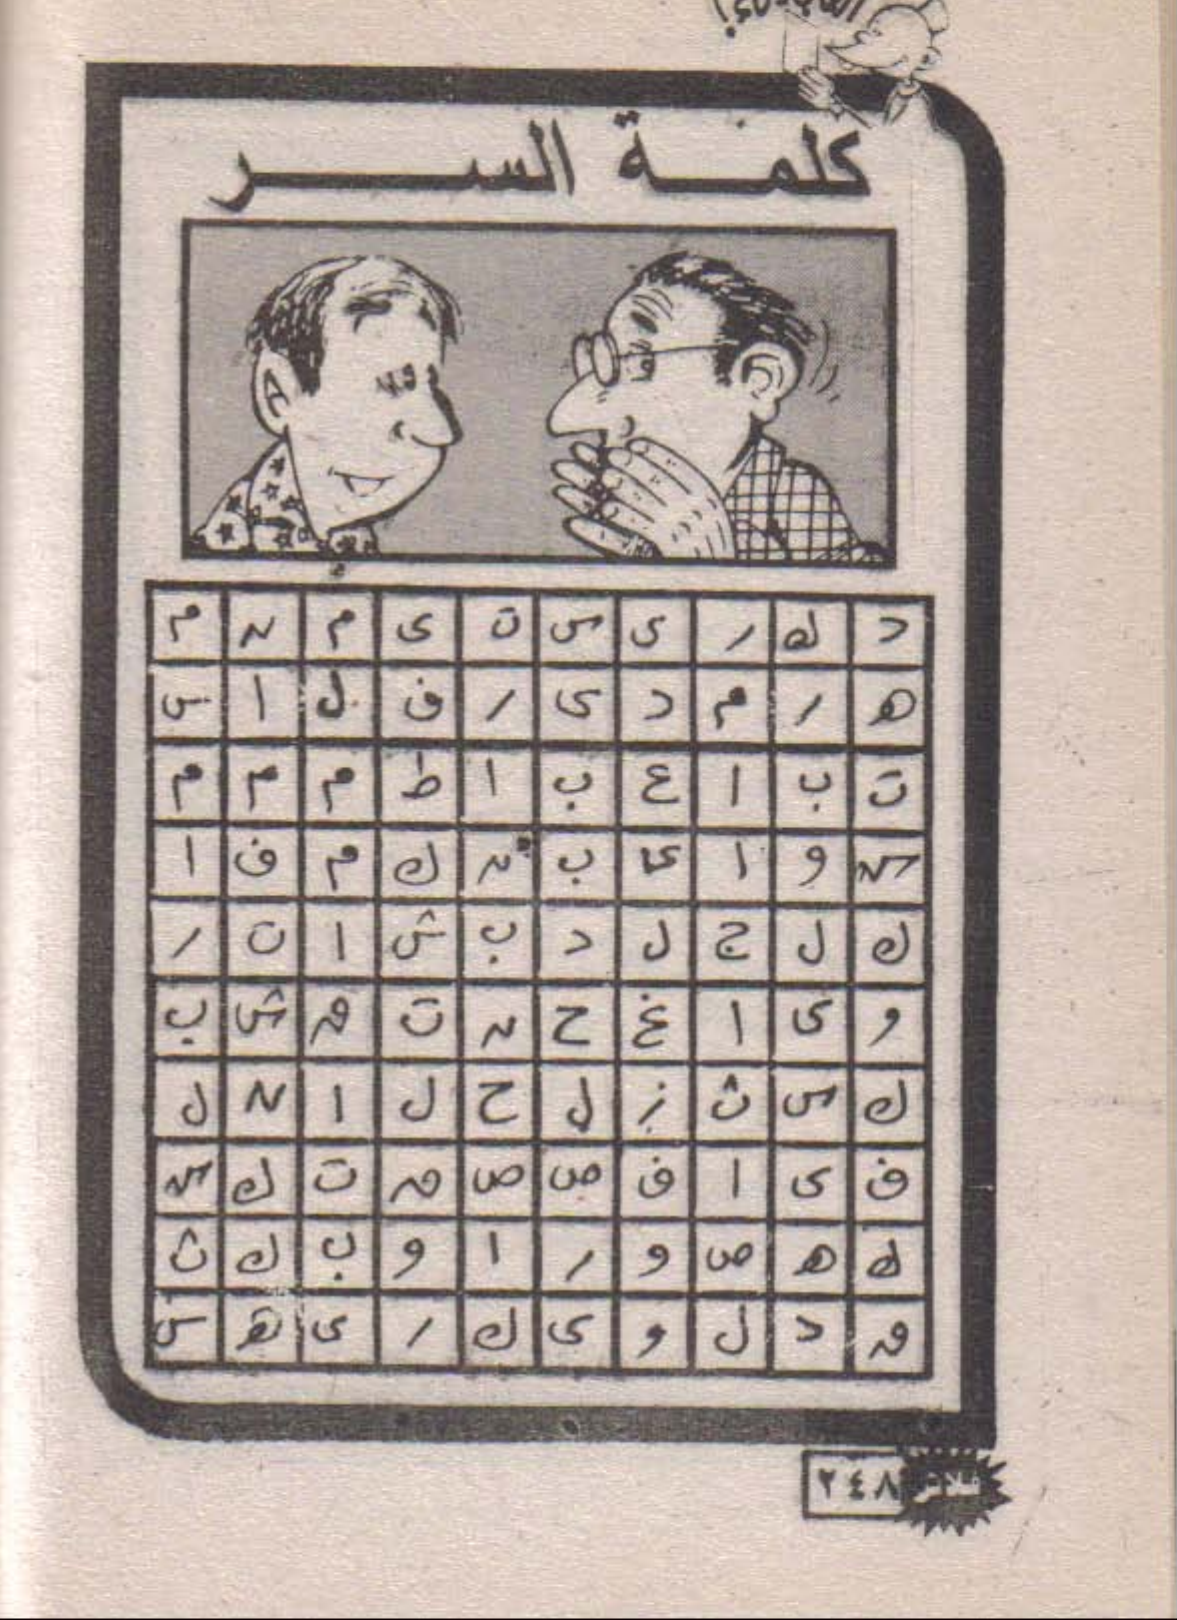 كلمة السر
د ك ر ى س ت ى م ن م
ه ر م د ى ر ف ل ا س
ت ب ا ع ب ا ط م م م
س و ا ى ب ن ك م ف ا
ك ل ج ل د ب ش ا ن ر
و ى ا غ ح ن ت م ش ب
ل س ث ز ل ح ل ا ن ل
ف ى ا ف ص ص م ت ك س
ك ه ص و ر ا و ب ك ث
م د ل و ى ك ر ى ه س
فلاش ٢٤٨